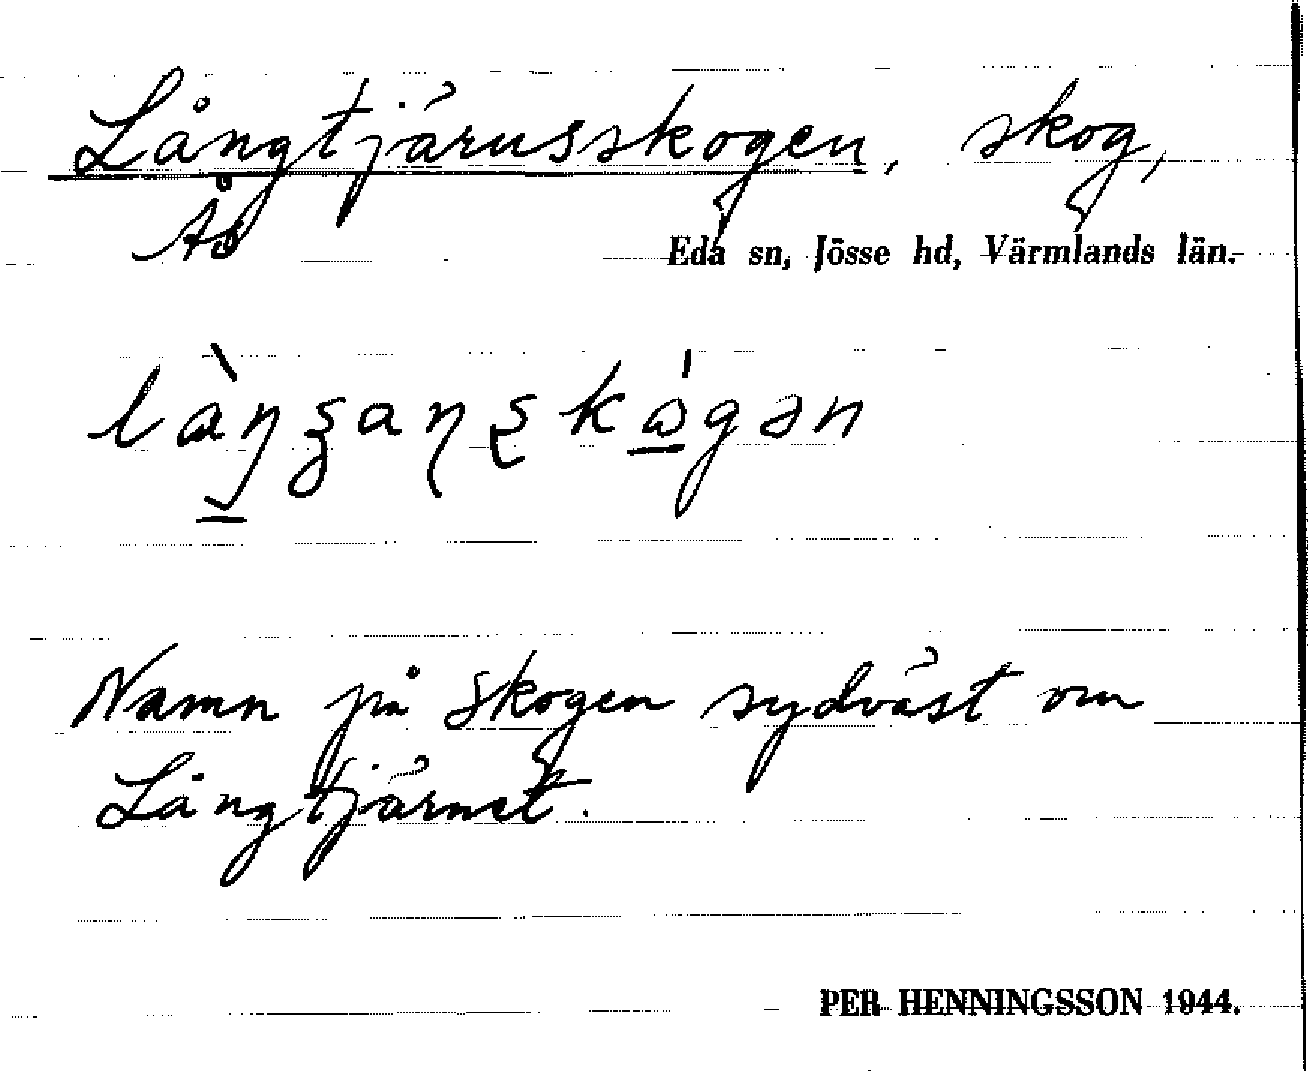 Långtjärnsskogen, skog,
Ås
Eda sn, Jösse hd, Värmlands län.
Namn på skogen sydväst om
Långtjärnet.
PER HENNINGSSON 1944.